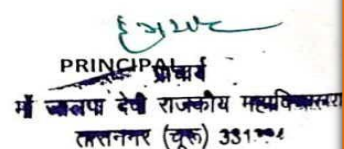 PRINCIPAL
प्राचार्य
माँ जालपा देवी राजकीय महाविद्यालय
तारानगर (चूरू)